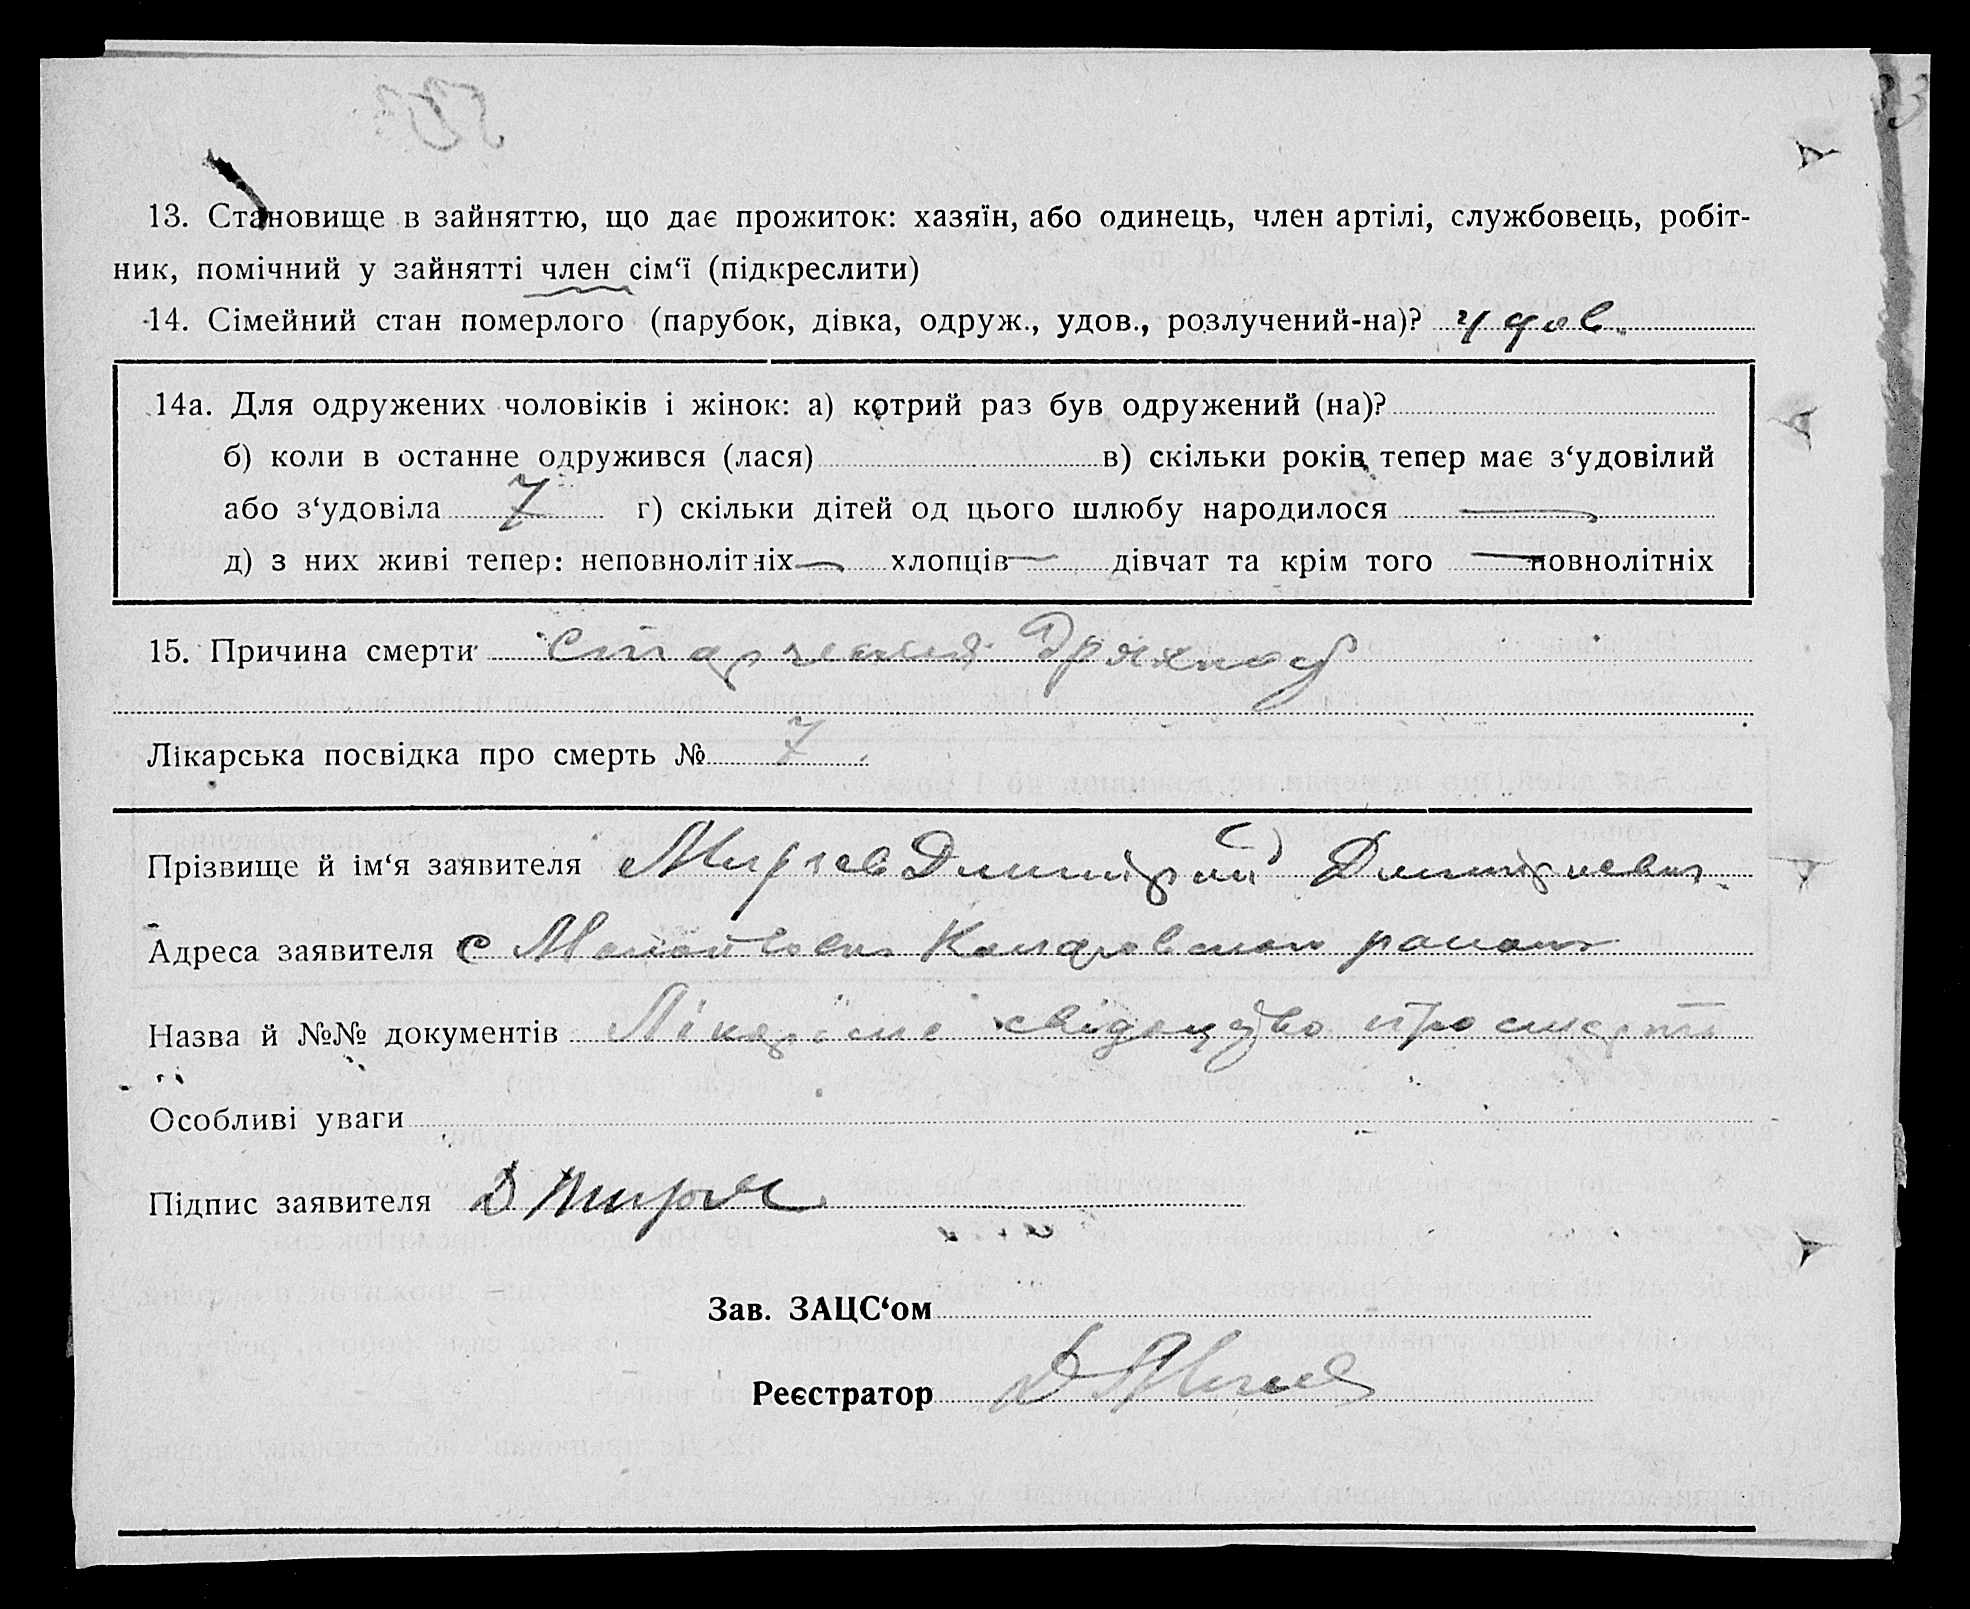 13. Становище в зайняттю, що дає прожиток: хазяїн, або одинець, член артілі, службовець, робіт-
ник, помічний у зайнятті член сім‘ї (підкреслити)
14. Сімейний стан померлого (парубок, дівка, одруж., удов., розлучений-на)? удов.
14а. Для одружених чоловіків і жінок: а) котрий раз був одружений (на)?
б) коли в останне одружився (лася) в) скільки років тепер має з‘удовілий
або з‘удовіла 7 г) скільки дітей од цього шлюбу народилося —
д) з них живі тепер: неповнолітніх — хлопців — дівчат та крім того — повнолітніх
15. Причина смерти старческая дряхлость
Лікарська посвідка про смерть № 7
Прізвище й ім‘я заявителя Дмитрий Дмитриевич
Адреса заявителя с района
Назва й №№ документів Лікарське свідоцтво про смерть
Особливі уваги
Підпис заявителя Д
Зав. ЗАЦС‘ом
Реєстратор